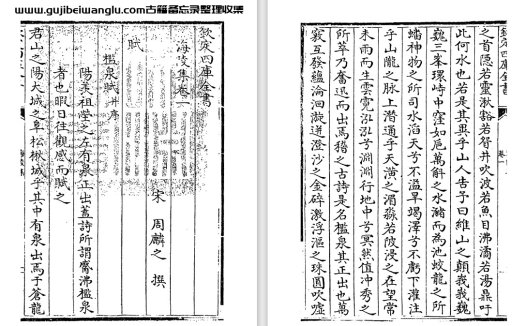 www.gujibeiwanglu.com古籍备忘录整理收集
欽定四庫全書
海陵集卷一
宋 周麟之 撰
賦
檻泉賦并序
陽羨祖塋之左有泉正出蓋詩所謂觱沸檻泉
者也暇日往觀感而賦之
君山之陽大城之阜松楸城乎其中有泉出焉于蒼龍
欽定四庫全書
之首隠若靈湫豁若眢井吹波若魚目沸滴若湯鼎吁
此何水也若是其異乎山人告予曰維山之顛峩峩巍
巍三峯環峙中窪如巵萬斛之水瀦而為池蛟龍之所
蟠神物之所司水滔天兮不溢旱竭澤兮不虧下灌注
乎山隴之脉上潛通乎天潢之湄若陂浸之在望常
未雨而生雲寛泓泓兮行地中兮冥然值冲秀之
所萃乃奮迅而出焉稽之古詩是名檻泉其正出也萬
竅互發淪洄漩迸澄沙之金碎濺浮漚之珠圓吹噓